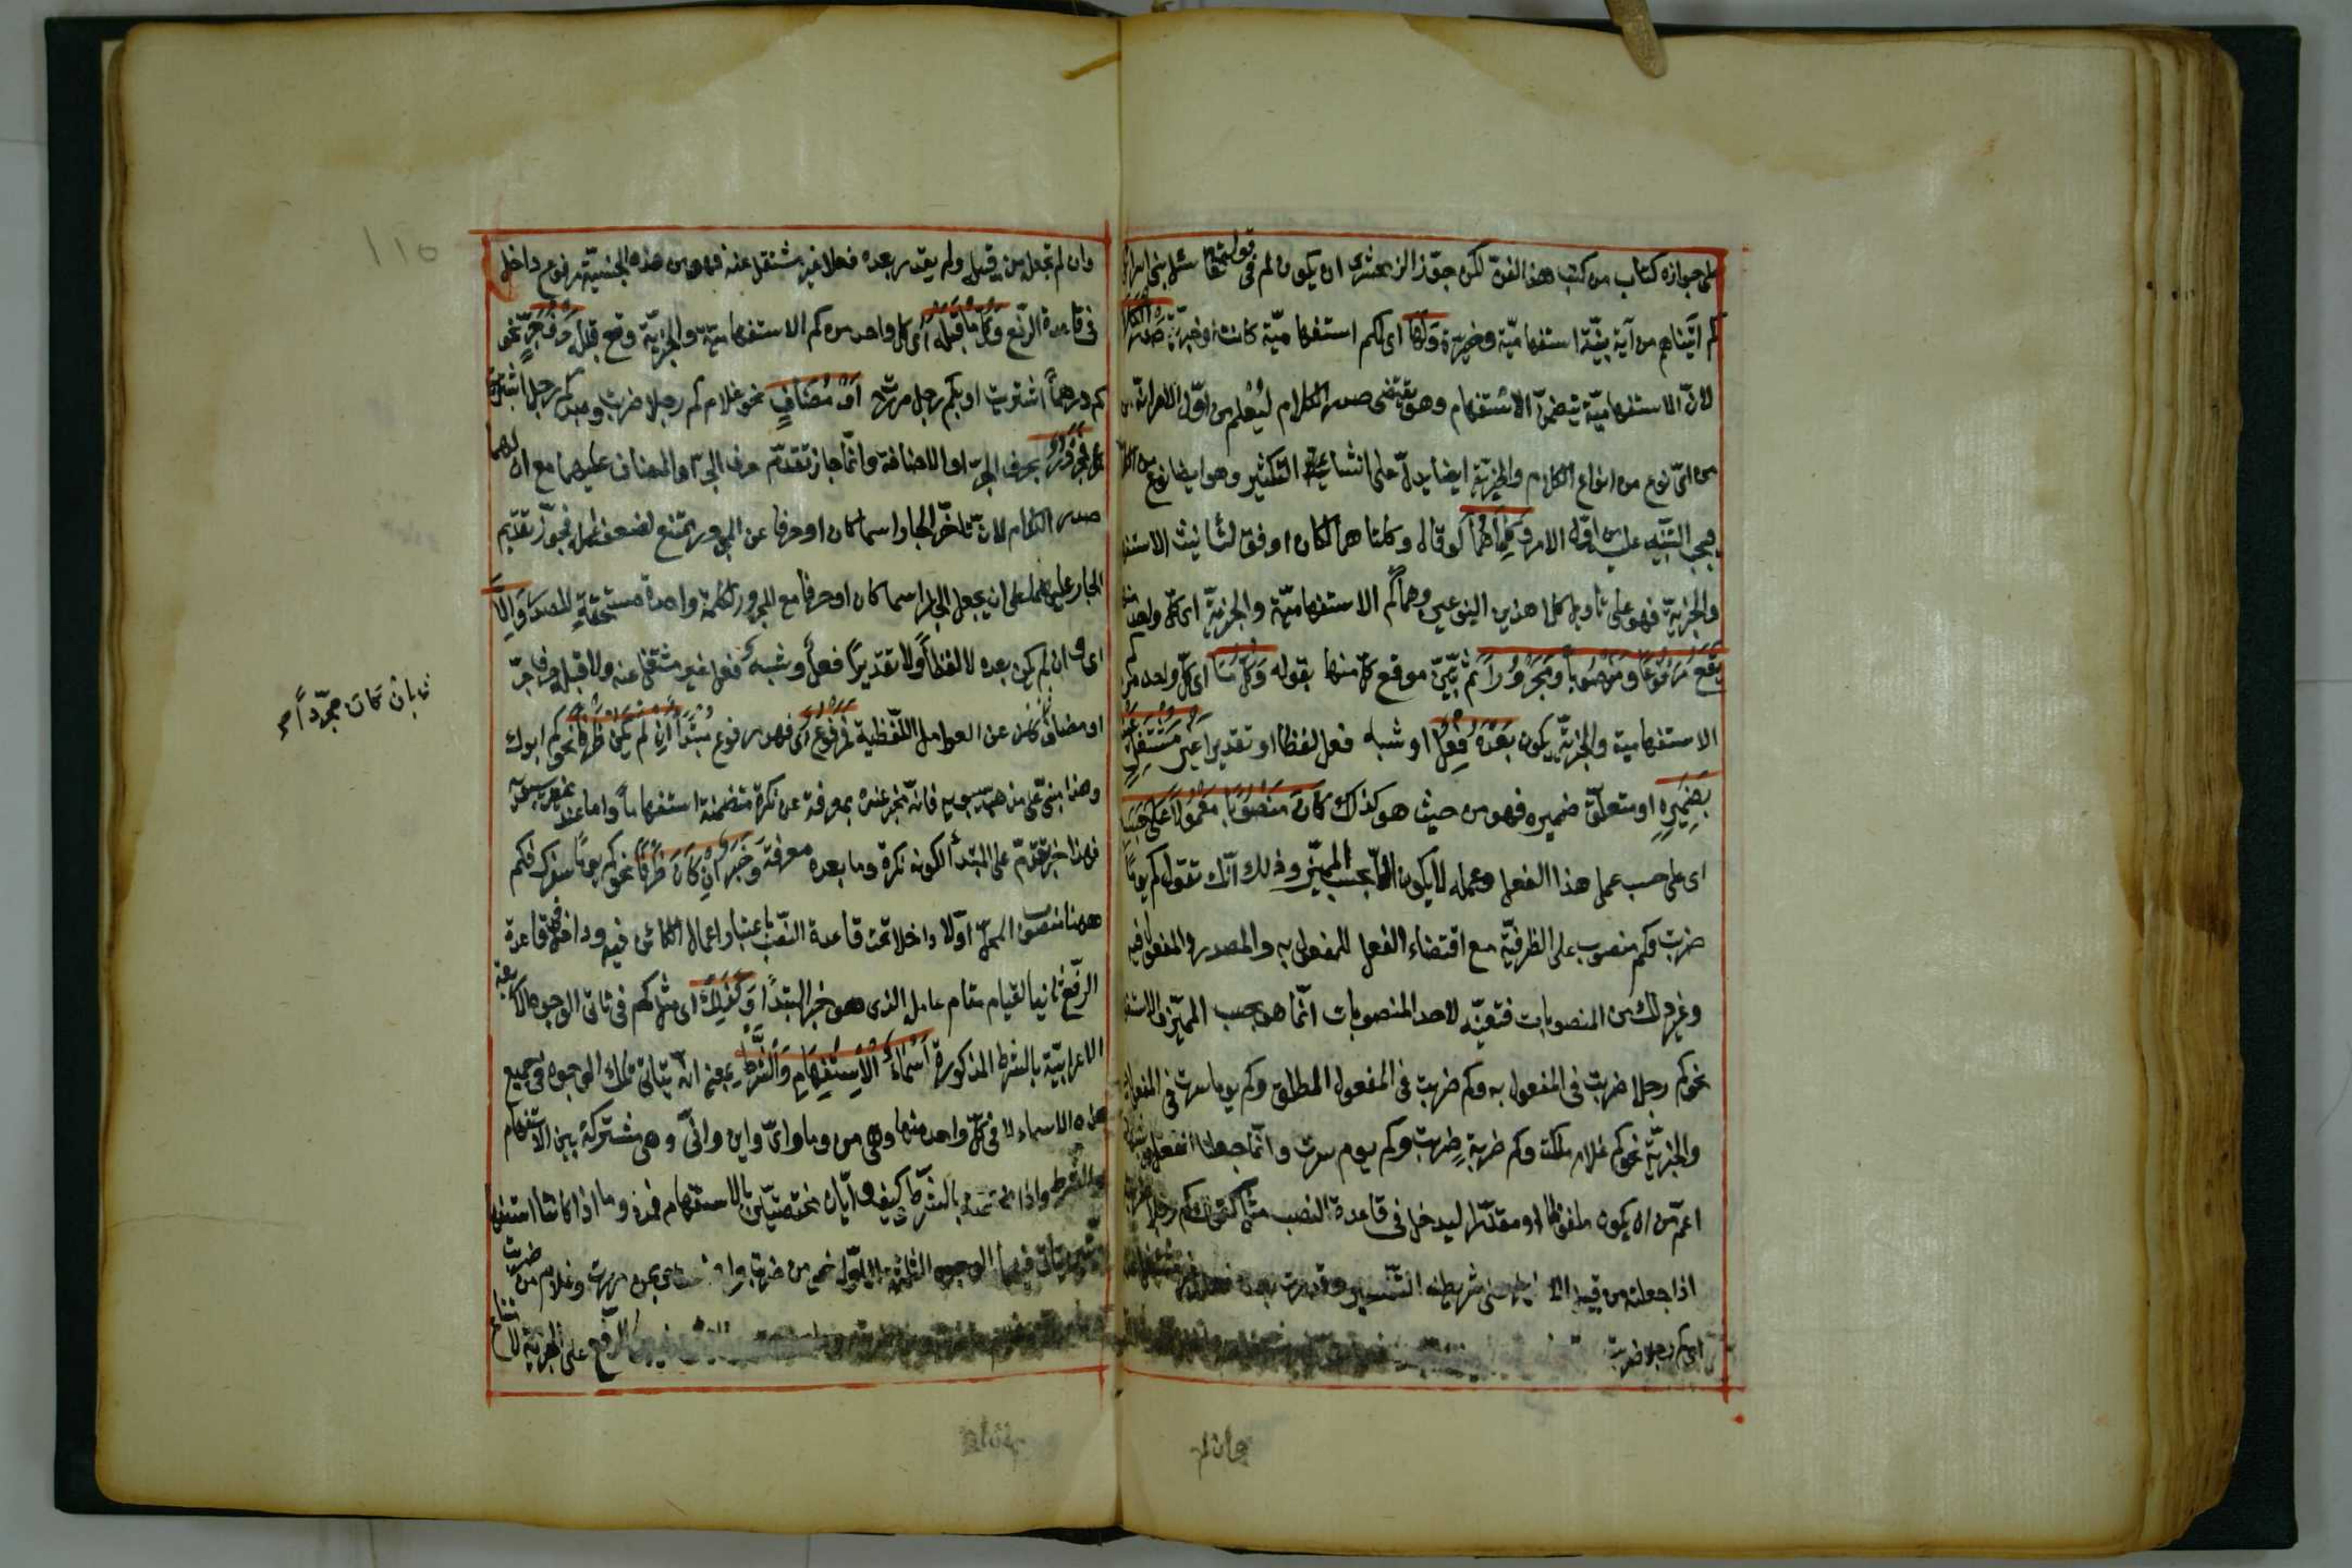 على جوازه كتاب من كتب هذا الفنّ لكن جوّز الزمخشرى ان يكون لم فى قوله تعالى سل بنى اسرائيل
كم آتيناهم من آية بيّنة استفهاميّة وخبريّة ولهما اى لكم استفهاميّة كانت او خبريّة صدر الكلام
لانّ الاستفهاميّة يتضمّن الاستفهام وهو يقتضى صدر الكلام ليُعلم من اوّل الامر انّه من
من اىّ نوع من انواع الكلام والخبريّة ايضا يدلّ على انشاء التكثير وهو ايضا نوع من الكلام
فيجب التنبيه عليه من اوّل الامر وكلاهما لو قال وكلتاهما لكان اوفق لتأنيث الاستفهامية
والخبريّة فهو على تاويل كلا هذين النوعين وهما كم الاستفهاميّة والخبريّة اى كلّ واحد منهما
يقع مرفوعا ومنصوبا ومجرورا ثم بيّن موقع كلّ منها بقوله وكلّ ما اى كلّ واحد من كم
الاستفهامية والخبريّة يكون بعده فعل او شبه فعل لفظا او تقديرا غير مشتغل عنه
بضميره او متعلّق ضميره فهو من حيث هو كذلك كان منصوبا معمولا على حسبه
اى على حسب عمل هذا الفعل وعمله لا يكون الّا بحسب المميّز وذلك انّك تقول كم يوما
ضربت وكم منصوب على الظرفيّة مع اقتضاء الفعل للمفعول به والمصدر والمفعول فيه
وغير ذلك من المنصوبات فتعيّنه لاحد المنصوبات انّما هو بحسب المميّز فالاستفهامية
نحو كم رجلا ضربت فى المفعول به وكم ضربت فى المفعول المطلق وكم يوما سرت فى المفعول فيه
والخبريّة نحو كم غلام ملكت وكم ضربةٍ ضربت وكم يوم سرت وانّما جعلنا الفعل وشبهه
اعمّ من ان يكون ملفوظا او مقدّرا ليدخل فى قاعدة النصب مثل كقولك كم رجلا ضربته
اذا جعلته من قبيل الاضمار على شريطة التفسير وقدرت بعده فعلا غير مشتغل عنه
اى كم رجلا ضربت
وان لم
وان لم تجعل من قبيله ولم يقدر بعده فعلا غير مشتغل عنه فهو من هذه الحيثيّة مرفوع داخل
فى قاعدة الرفع وكلّ ما قبله اى كل واحد من كم الاستفهاميّة والخبريّة وقع قبله حرف جرّ نحو
بكم درهماً اشتريت او بكم رجل مررت او مضاف نحو غلام كم رجلا ضربت وعبد كم رجل اشتريت
فمجرور بحرف الجرّ او الاضافة وانّما جاز تقدّم حرف الجرّ او المضاف عليهما مع ان لهما
صدر الكلام لانّ تاخّر الجار اسما كان او حرفا عن المجرور ممتنع لضعف عمله فجوّز تقديم
الجار عليهما على ان يجعل الجار اسما كان او حرفا مع المجرور ككلمة واحدة مستحقّة للصدر وإلّا
اى وان لم يكن بعده لا لفظاً ولا تقديرًا فعل او شبه فعل غير مشتغل عنه ولا قبله حرف جرّ
او مضاف كان عن العوامل اللّفظية فمرفوع اى فهو مرفوع مبتدأ إن لم يكن ظرفا نحو كم ابوك
وهذا مبنىّ على مذهب سيبويه فانّه يخبر عنده بمعرفة عن نكرة متضمنة استفهاما واما عند غير سيبويه
فهذا خبر تقدّم على المبتدأ لكونه نكرة وما بعده معرفة وخبر ان كان ظرفا نحو كم يومًا سفرك فكم
ههنا منصوب المحلّ اولا داخل تحت قاعدة النصب باعتبار اعمال الكائن فيه وداخل فى قاعدة
الرّفع ثانيا لقيام مقام عامله الذى هو خبر المبتدأ وكذلك اى مثل كم فى تاتى الوجوه الاربعة
الاعرابيّة بالشرط المذكورة اسماء الاستفهام والشّرط بمعنى انه يتاتى تلك الوجوه فى جميع
هذه الاسماء لا فى كلّ واحد منها وهى من وما واىّ واين وانّى وهى مشتركة بين الاستفهام
والشرط واذا مختصّة بالشرط وكيف وايّان مختصّتان بالاستفهام فمن وما اذا كانتا استفهاميتين
يتاتى فيهما الوجوه الثلثة الاوّل نحو من ضربت وبمن مررت وغلام من ضربت
الرفع على الخبرية لامتناع
بان كان مجرّداً
١١٥